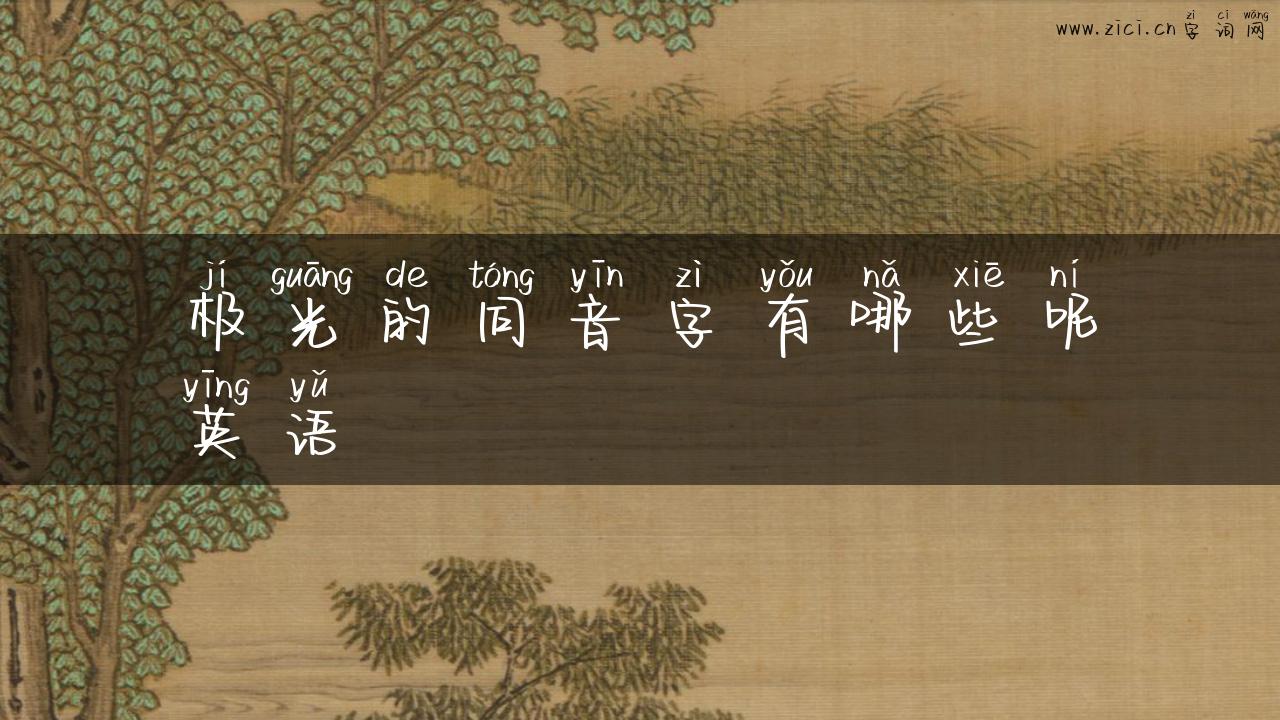 zì cí wǎng
www.zici.cn 字词网
jí guāng de tóng yīn zì yǒu nǎ xiē ní
极光的同音字有哪些呢
yīng yǔ
英语